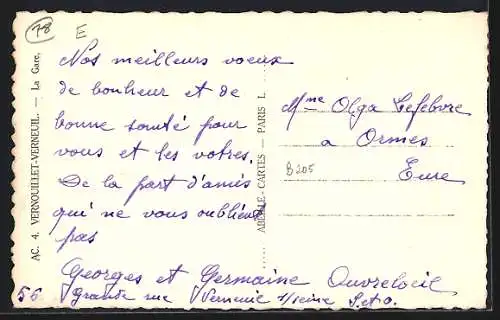 78
E
AC. 4. VERNOUILLET-VERNEUIL. — La Gare.
Nos meilleurs voeux
de bonheur et de
bonne santé pour
vous et les votres.
De la part d'amis
qui ne vous oublient
pas
Georges et Germaine Ouvreloeil
56 grande rue Verneuil s/seine S.et.O.
ABEILLE-CARTES — PARIS
Mme Olga Lefebvre
a Ormes
Eure
B205